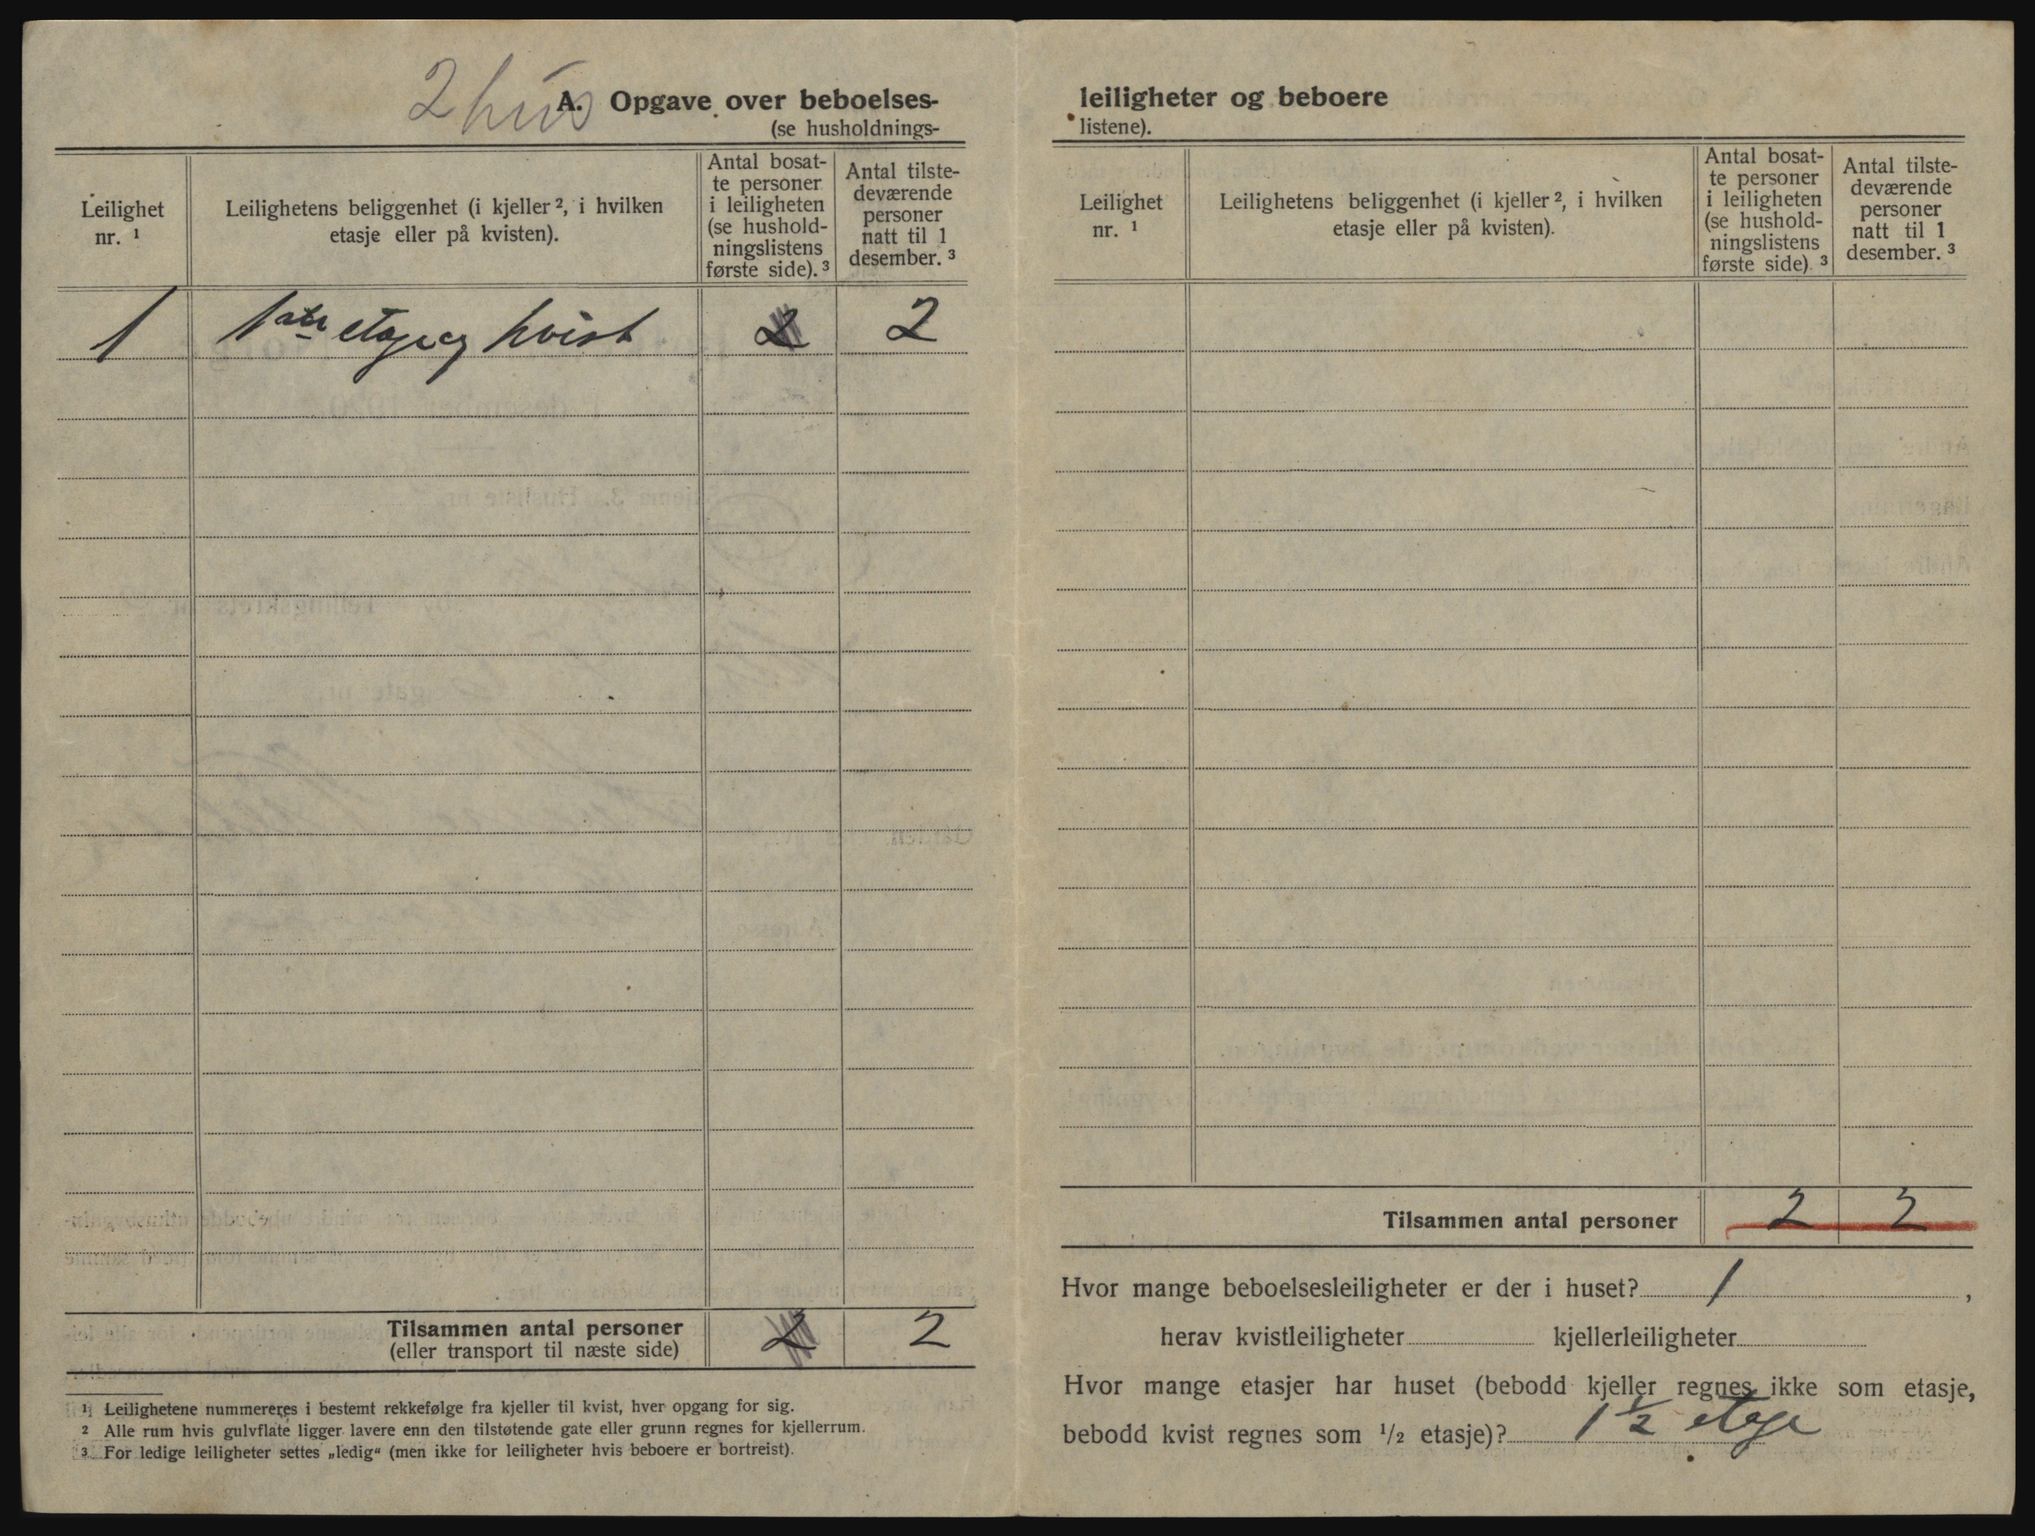 2 hus
A. Opgave over beboelses-
(se husholdnings-
Leilighet nr. ¹
Leilighetens beliggenhet (i kjeller ², i hvilken
etasje eller på kvisten).
Antal bosat-
te personer
i leiligheten
(se hushold-
ningslistens
første side). ³
Antal tilste-
deværende
personer
natt til 1
desember. ³
1 1ste etage og kvist 2 2
Tilsammen antal personer 2 2
(eller transport til næste side)
¹ Leilighetene nummereres i bestemt rekkefølge fra kjeller til kvist, hver opgang for sig.
² Alle rum hvis gulvflate ligger lavere enn den tilstøtende gate eller grunn regnes for kjellerrum.
³ For ledige leiligheter settes „ledig“ (men ikke for leiligheter hvis beboere er bortreist).
leiligheter og beboere
listene).
Leilighet
nr. ¹
Leilighetens beliggenhet (i kjeller ², i hvilken
etasje eller på kvisten).
Antal bosat-
te personer
i leiligheten
(se hushold-
ningslistens
første side). ³
Antal tilste-
deværende
personer
natt til 1
desember. ³
Tilsammen antal personer 2 2
Hvor mange beboelsesleiligheter er der i huset? 1 ,
herav kvistleiligheter kjellerleiligheter
Hvor mange etasjer har huset (bebodd kjeller regnes ikke som etasje,
bebodd kvist regnes som ½ etasje)? 1 ½ etage